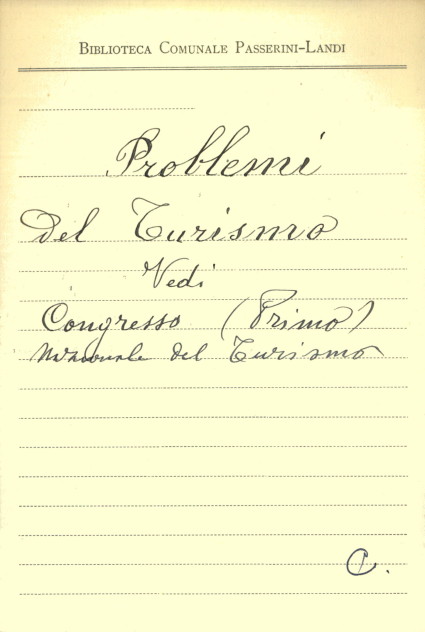 Biblioteca Comunale Passerini-Landi
Problemi
del Turismo
Vedi
Congresso (Primo)
Nazionale del Turismo
C.